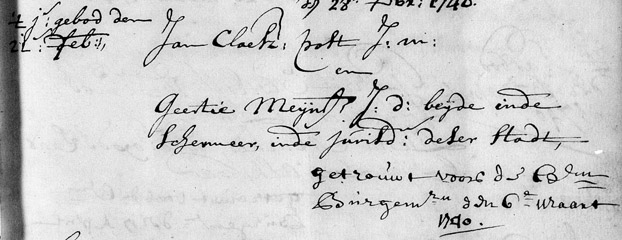 28 Febr: 1740.
't j.e gebod den
21: feb:,
Jan Claesz: pott J: m:
en
Geertie Meijns J: d: beijde inde
Schermeer, inde jurisd: deser Stadt,
getrouwt voor de E:
Burgem:ren den 6e maart
1740.